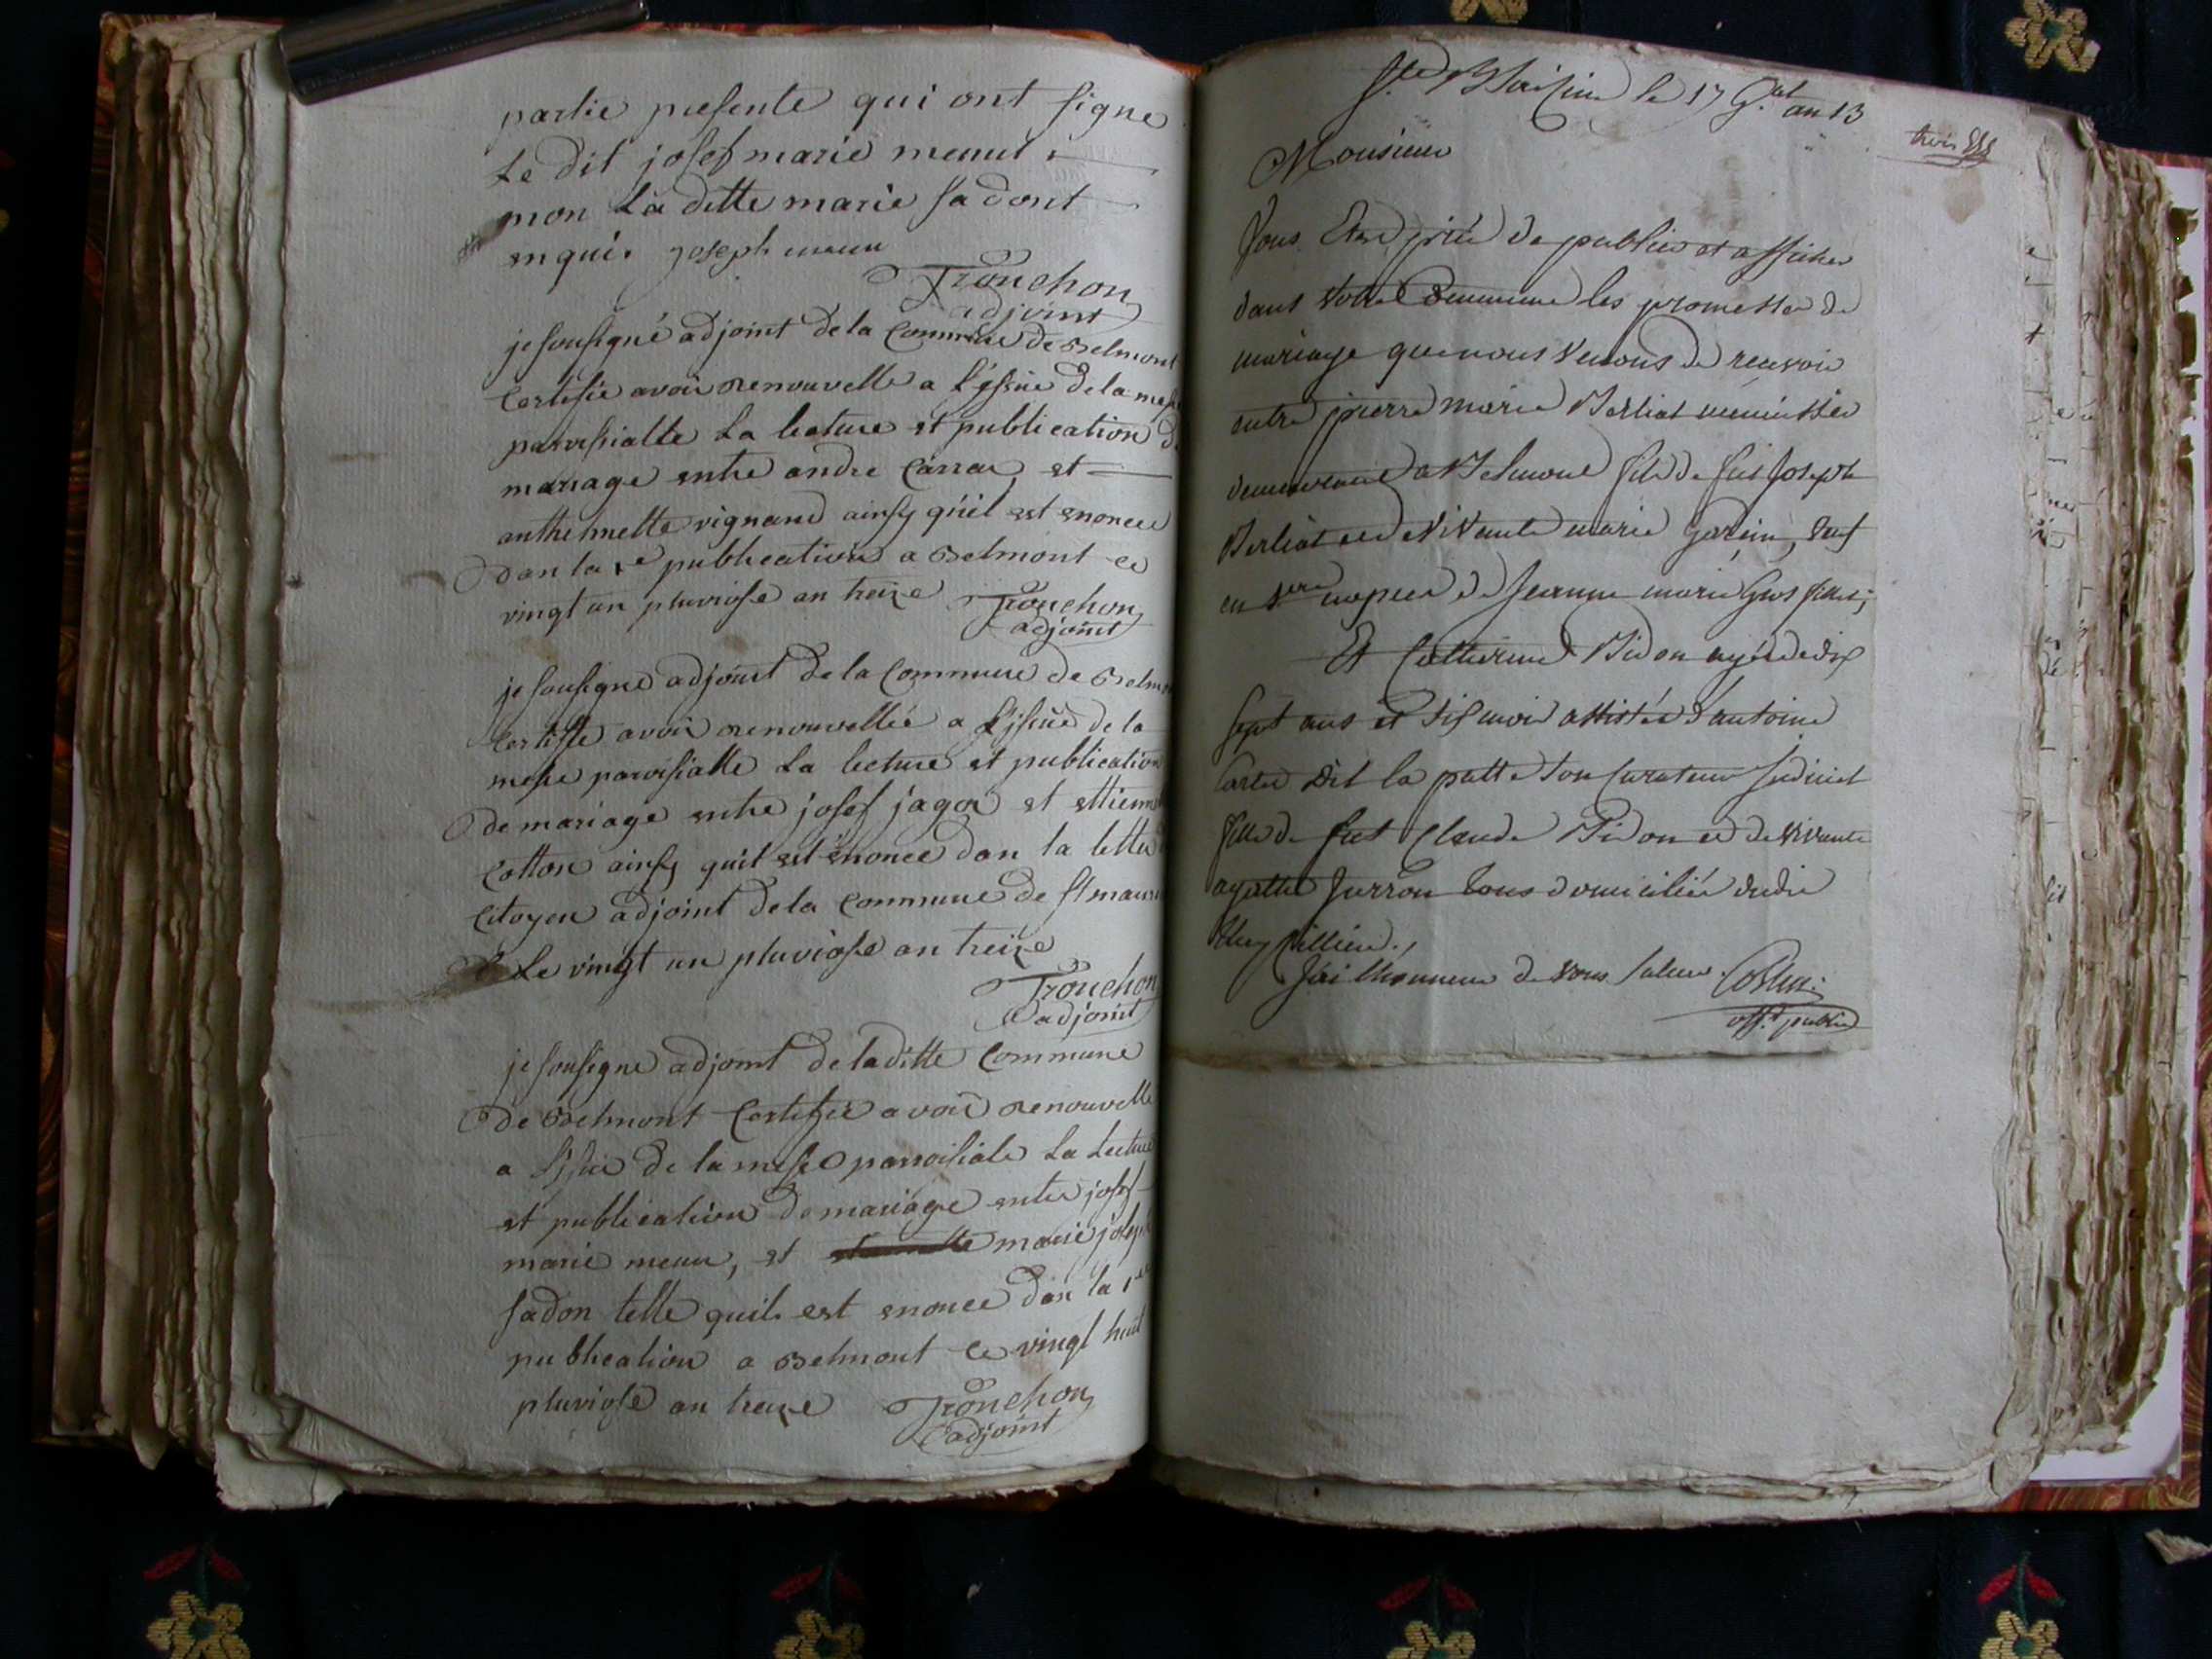 partie presente qui ont signe
Le dit josef marie menu
mon La ditte marie sadont
enqui. joseph menu
Tronchon
adjoint
je sousigné adjoint de la Commune de Belmont
Certifie avoir renouvelle a l'issue de la messe
paroissialle La lecture et publication de
mariage entre andre Carrau et
anthelmette vignand ainsy quil est enoncee
dan la 1re publication a Belmont ce
vingt un pluviose an treize Tronchon
adjoint
je sousigne adjoint de la Commune de Belmont
Certiffie avoir renouvellée a l'issue de la
messe paroissialle La lecture et publication
de mariage entre josef jagou et ettiennette
Cotton ainsy quil est enonce dan la lettre
Citoyen adjoint de la Commune de st mauris
Le vingt un pluviose an treize
Tronchon
adjoint
je sousigne adjoint de la ditte Commune
de Belmont Certifie avoir renouvelle
a l'issue de la messe paroissiale La Lecture
et publication de mariage entre josef
marie menu, et marie joseph
sadon telle quil est enonce dan la 1re
publication a Belmont ce vingt huit
pluviose an treize Tronchon
adjoint
le 17 an 13
Monsieur
Vous Etes prié de publier et afficher
dans votre Commune les promesses de
mariage que nous venons de recevoir
entre pierre marie Berliat menuissier
demeurant a Belmont fils de feu Joseph
Berliat et de vivante marie Garin, veuf
en 1ere nopces de Jeanne marie Gros fillet;
Et Catherine Bidon agée de dix
sept ans et six mois assistée d'antoine
Carter dit la patte son Curateur
fille de feu Claude Bidon et de vivante
agathe Jurron tous domiciliés dudit
J'ai lhonneur de vous saluer
off. public